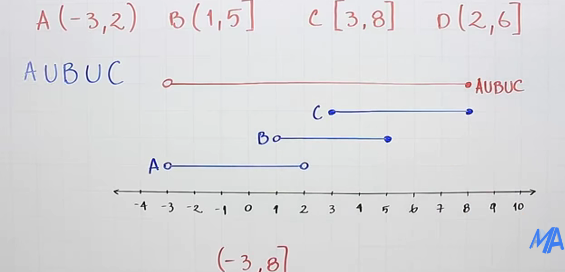 A(-3,2) B(1,5] C[3,8] D(2,6]
AUBUC
AUBUC
C
B
A
-4 -3 -2 -1 0 1 2 3 4 5 6 7 8 9 10
MA
(-3,8]